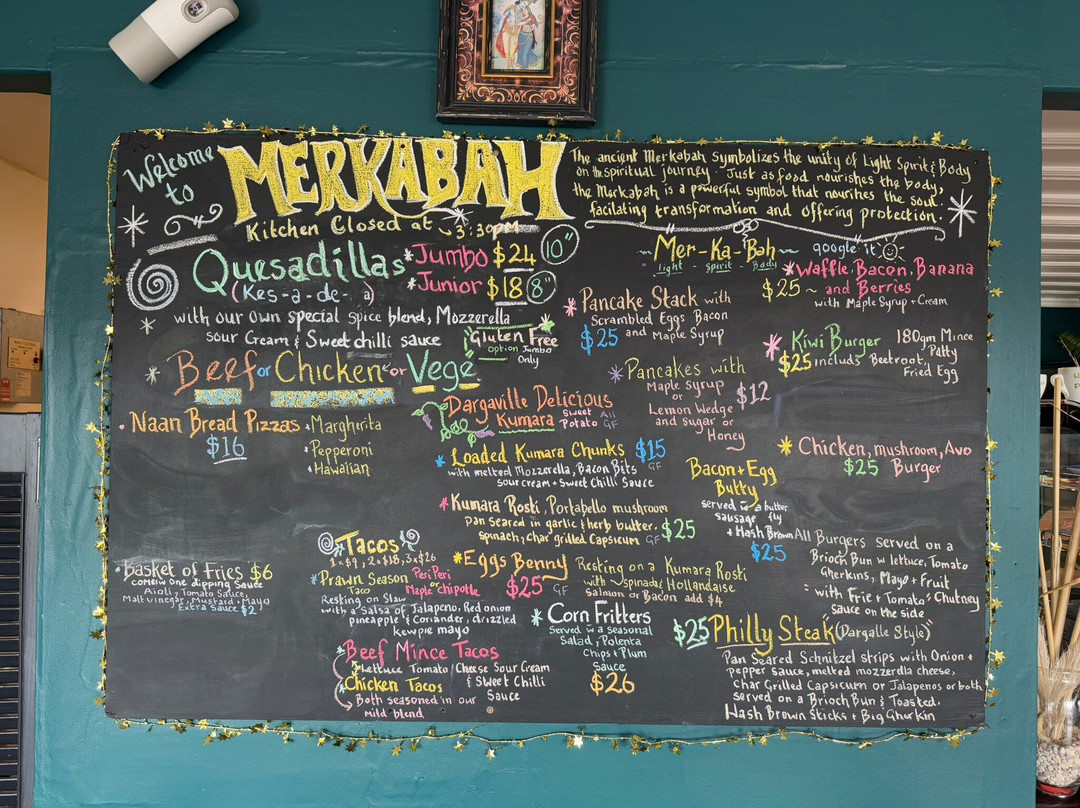 Welcome to MERKABAH
Kitchen Closed at ~ 3:30pm
The ancient Merkabah symbolizes the unity of Light Spirit & Body
on the spiritual journey. Just as food nourishes the body,
the Merkabah is a powerful symbol that nourihes the soul.
facilating transformation and offering protection.
Mer-Ka-Bah ~ google it
light - spirit - Body
Quesadillas
(Kes-a-de- a)
Jumbo $24 10"
Junior $18 8"
with our own special spice blend, Mozzerella
Sour Cream & Sweet chilli sauce
Gluten Free
option Jumbo
Only
Beef or Chicken or Vege
Naan Bread Pizzas
$16
Margherita
Pepperoni
Hawaiian
Basket of Fries $6
comew one dipping Sauce
Aioli, Tomato Sauce,
Malt vinegar, Mustard + Mayo
Extra Sauce $2
Tacos
1x$9, 2x$18, 3x$26
Prawn Season Peri Peri
Taco or Maple chipotle
Resting on Slaw
with a Salsa of Jalapeno, Red onion
pineapple & Coriander, drizzled
kewpie mayo
Beef Mince Tacos
lettuce Tomato Cheese Sour Cream
& Sweet Chilli
Sauce
Chicken Tacos
Both seasoned in our
mild blend
Dargaville Delicious
Kumara Sweet Potato All GF
Loaded Kumara Chunks $15
with melted Mozzerella, Bacon Bits GF
sour cream + sweet chilli Sauce
Kumara Rosti, Portabello mushroom
pan seared in garlic & herb butter.
spinach, char grilled Capsicum GF $25
Eggs Benny
$25 GF
Resting on a Kumara Rosti
with spinach & Hollandaise
Salmon or Bacon add $4
Corn Fritters
Served w a seasonal
Salad, Polenta
Chips + Plum
Sauce
$26
Pancake Stack with
Scrambled Eggs Bacon
$25 and Maple Syrup
Pancakes with
Maple syrup
or
Lemon Wedge
and sugar or
Honey
$12
Bacon + Egg
Butty
served w a butter
sausage fly
+ Hash Brown
$25
Waffle, Bacon, Banana
$25 ~ and Berries
with Maple Syrup + Cream
Kiwi Burger 180gm Mince
Patty
$25 includs Beetroot,
Fried Egg
Chicken, mushroom, Avo
$25 Burger
All Burgers served on a
Brioch Bun w lettuce, Tomato
Gherkins, Mayo + Fruit
Chutney
with Frie + Tomato
sauce on the side
$25 Philly Steak (Dargalle Style)
Pan Seared Schnitzel strips with Onion +
pepper sauce, melted mozzerdla cheese,
Char Grilled Capsicum or Jalapenos or both
served on a Brioch Bun & Toasted.
Hash Brown Skicks + Big Gherkin